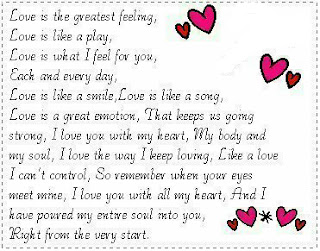 Love is the greatest feeling,
Love is like a play,
Love is what I feel for you,
Each and every day,
Love is like a smile,Love is like a song,
Love is a great emotion, That keeps us going
strong, I love you with my heart, My body and
my soul, I love the way I keep loving, Like a love
I can't control, So remember when your eyes
meet mine, I love you with all my heart, And I
have poured my entire soul into you,
Right from the very start.